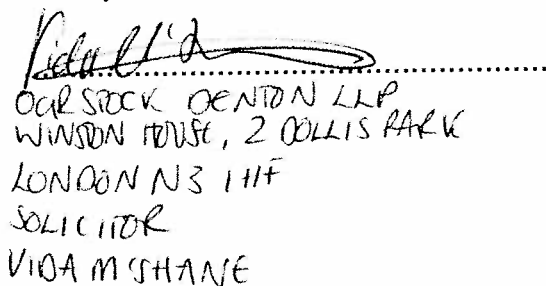 OUR STOCK DENTON LLP
WINSTON HOUSE, 2 DOLLIS PARK
LONDON N3 1HF
SOLICITOR
VIDA M'SHANE